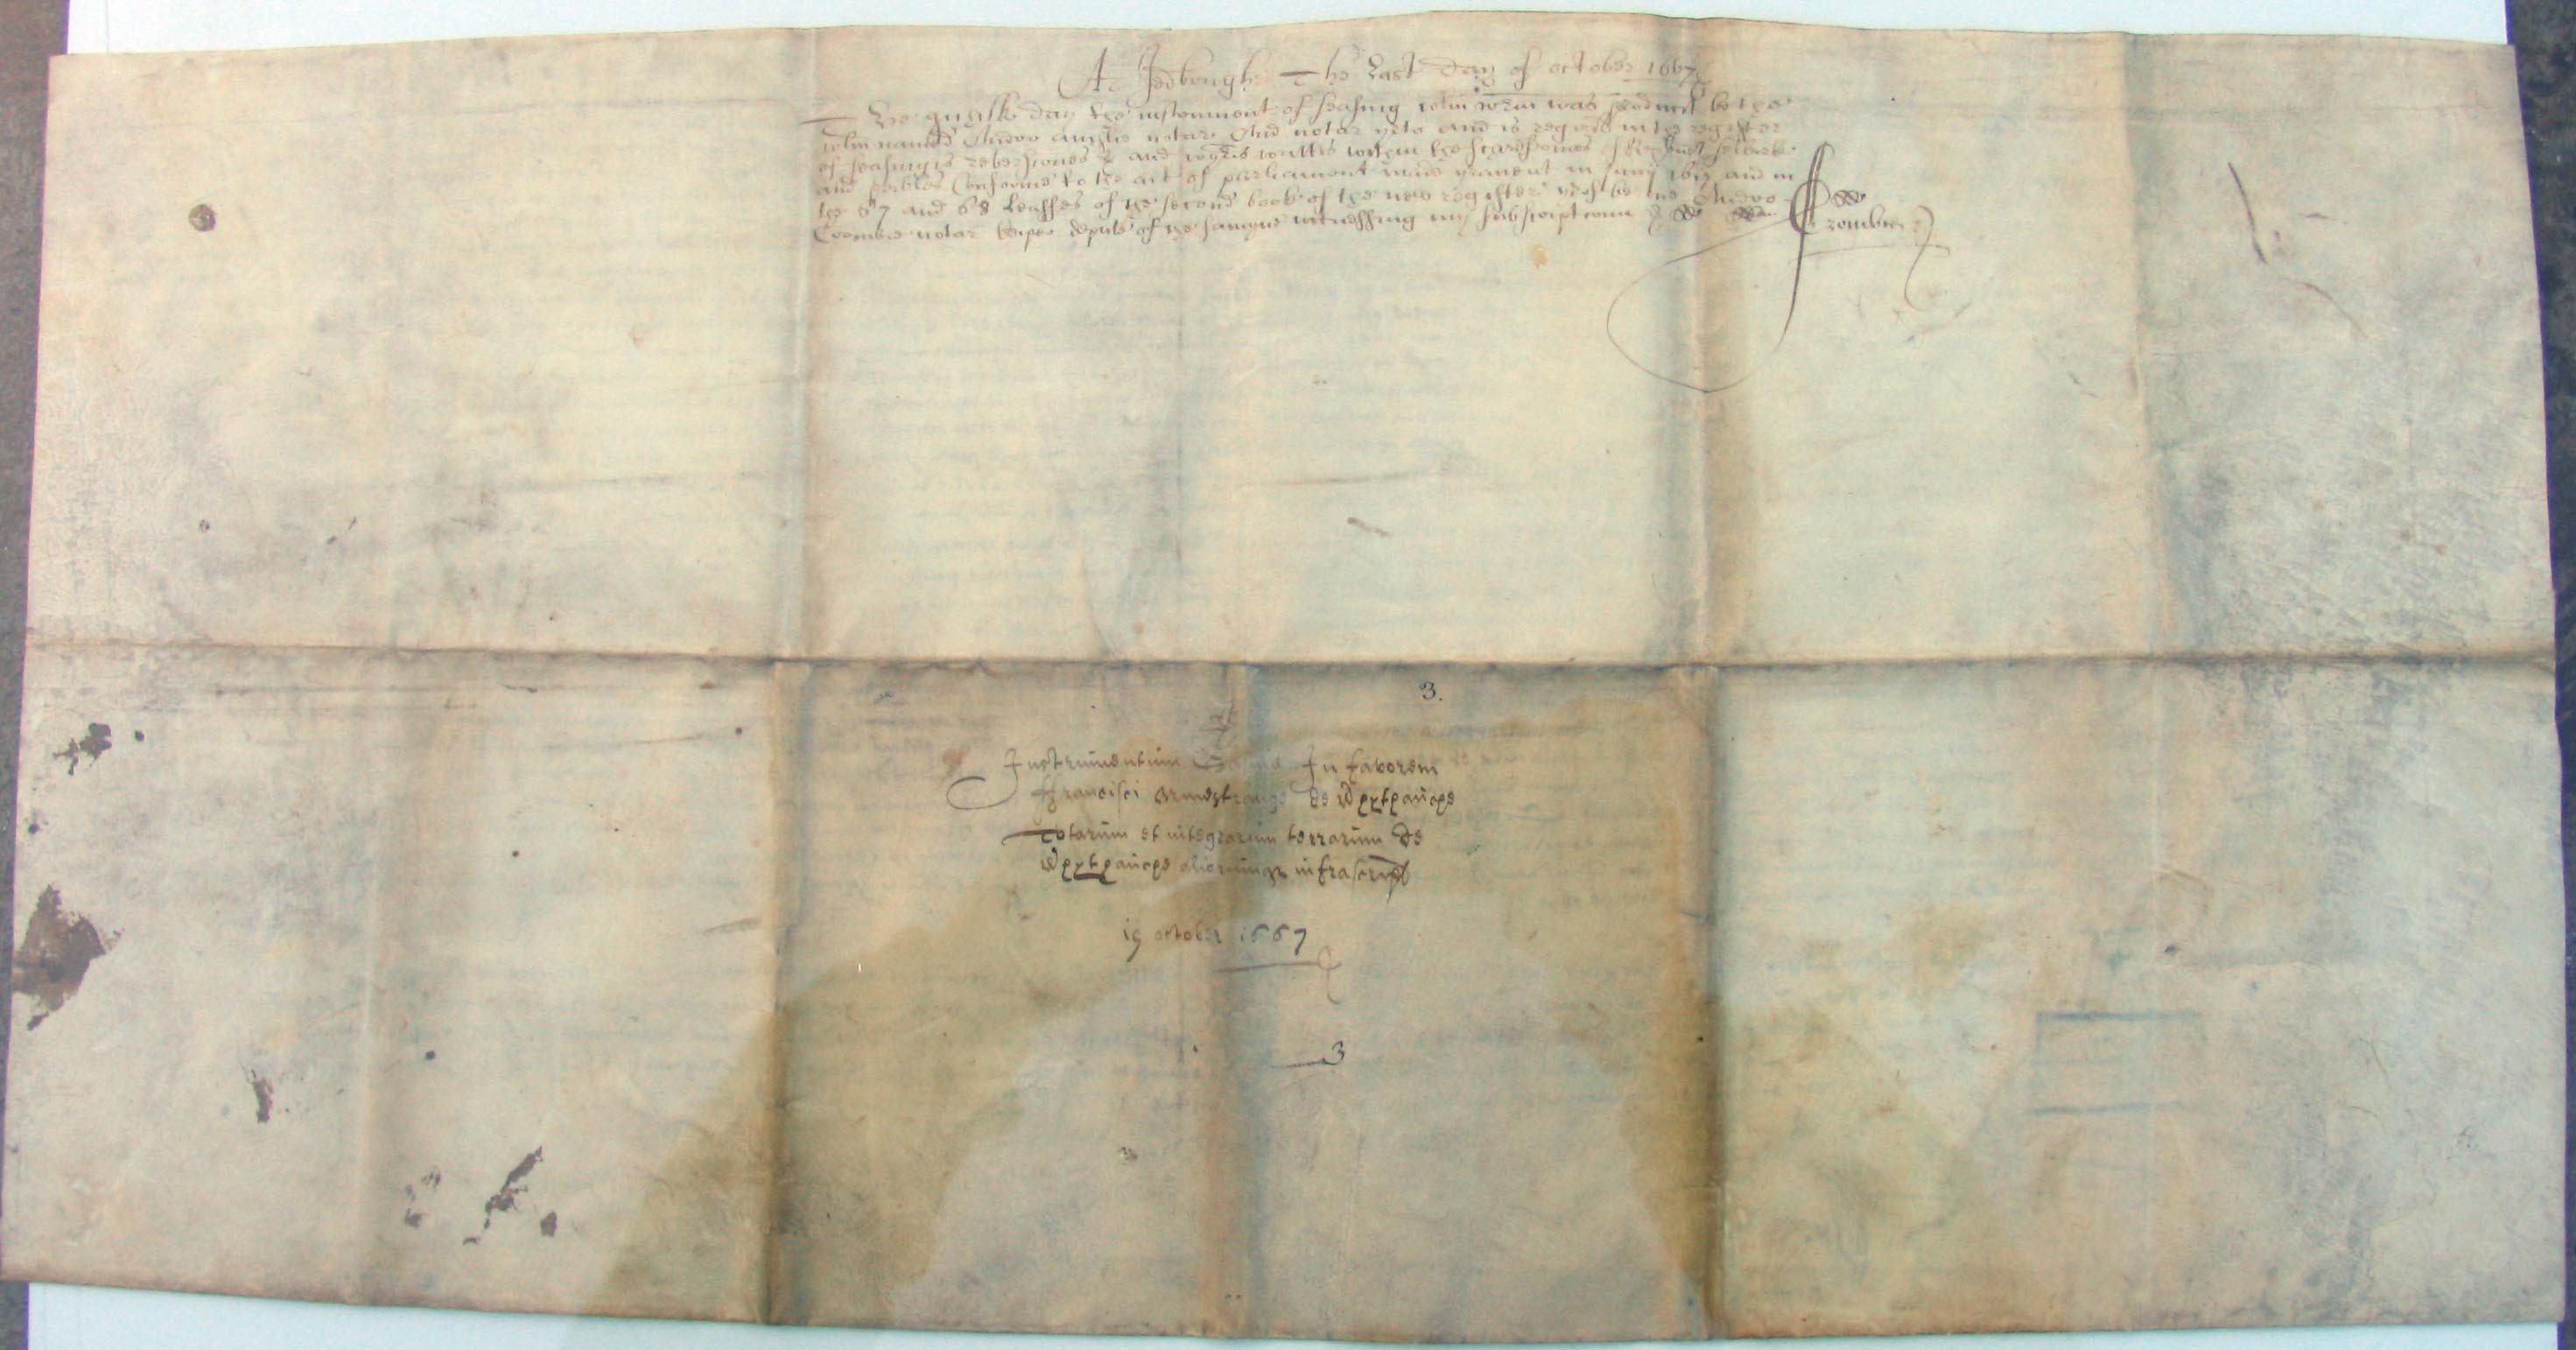 At Jedburgh The Last day of october 1667
The quhilk day the instrument of seasing within wrin was producit be the
within named Andro notar And notar yrto and is regrat in the register
of seasingis reversiones & and wyris wittis within the of Roxburt selkirk
and peibles Conforme to the act of parliament maid yranent in Junij 1617 and in
the 67 and 68 Leaffes of the second book of the new register yrof be me Andro
Crombie notar keiper depute of the samyne witnessing my subscriptioun
Crombie
3.
Instrumentum In favorem
ffrancisci Armestrange de Whythaughe
Totarum et integrarum terrarum de
Whythaughe aliorumqz infrascript
19 october 1667
3